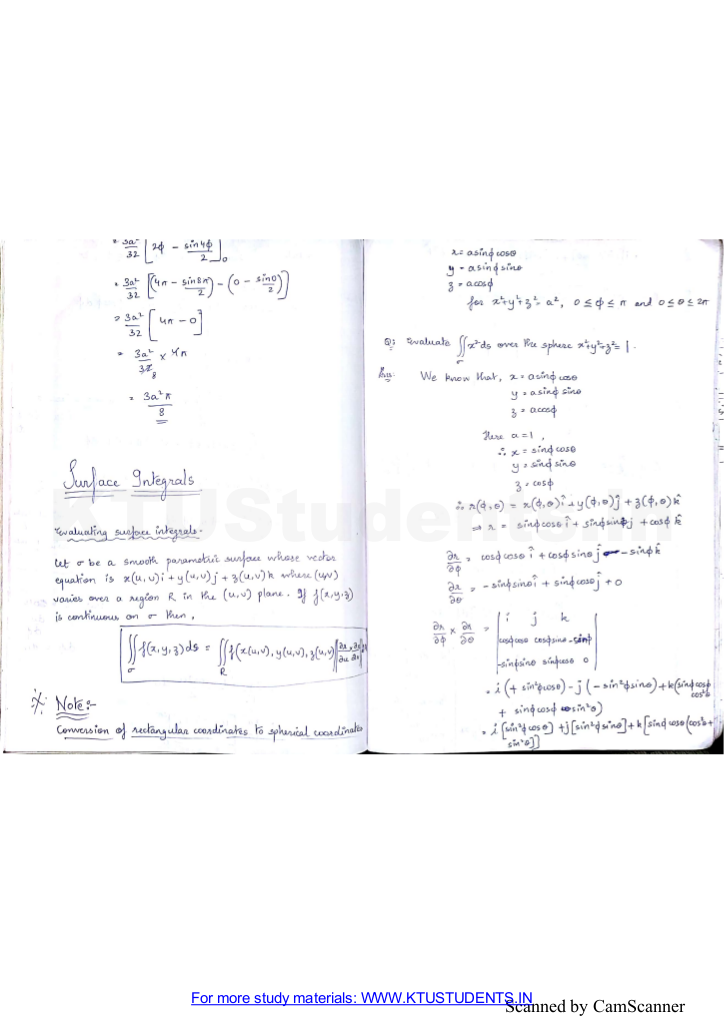 = 3a²/32 [2ϕ - sin4ϕ/2]₀
= 3a²/32 [(4π - sin8π/2) - (0 - sin0/2)]
= 3a²/32 [4π - 0]
= 3a²/32 8 × 4π
= 3a²π/8
Surface Integrals
Evaluating surface integrals-
Let σ be a smooth parametric surface whose vector
equation is x(u,v)i + y(u,v)j + z(u,v)k where (u,v)
varies over a region R in the (u,v) plane. If f(x,y,z)
is continuous on σ then,
∬σ f(x,y,z)ds = ∬R f(x(u,v), y(u,v), z(u,v)) |∂r/∂u × ∂r/∂v|
Note:-
Conversion of rectangular coordinates to spherical coordinates
x = asinϕcosθ
y = asinϕsinθ
z = acosϕ
for x²+y²+z² = a², 0 ≤ ϕ ≤ π and 0 ≤ θ ≤ 2π
Q: Evaluate ∬σ x²ds over the sphere x²+y²+z² = 1.
Ans: We know that, x = asinϕcosθ
y = asinϕsinθ
z = acosϕ
Here a = 1,
∴ x = sinϕcosθ
y = sinϕsinθ
z = cosϕ
∴ r(ϕ,θ) = x(ϕ,θ)î + y(ϕ,θ)ĵ + z(ϕ,θ)k̂
⇒ r = sinϕcosθ î + sinϕsinθ j + cosϕ k̂
∂r/∂ϕ = cosϕcosθ î + cosϕsinθ ĵ - sinϕ k̂
∂r/∂θ = -sinϕsinθ î + sinϕcosθ ĵ + 0
∂r/∂ϕ × ∂r/∂θ = | i j k
cosϕcosθ cosϕsinθ -sinϕ
-sinϕsinθ sinϕcosθ 0 |
= i(+ sin²ϕcosθ) - j(-sin²ϕsinθ) + k(sinϕcosϕ cos²θ
+ sinϕcosϕ sin²θ)
= i[sin²ϕcosθ] + j[sin²ϕsinθ] + k[sinϕcosθ(cos²θ +
sin²θ)]
KTUStudents.in
For more study materials: WWW.KTUSTUDENTS.IN
Scanned by CamScanner